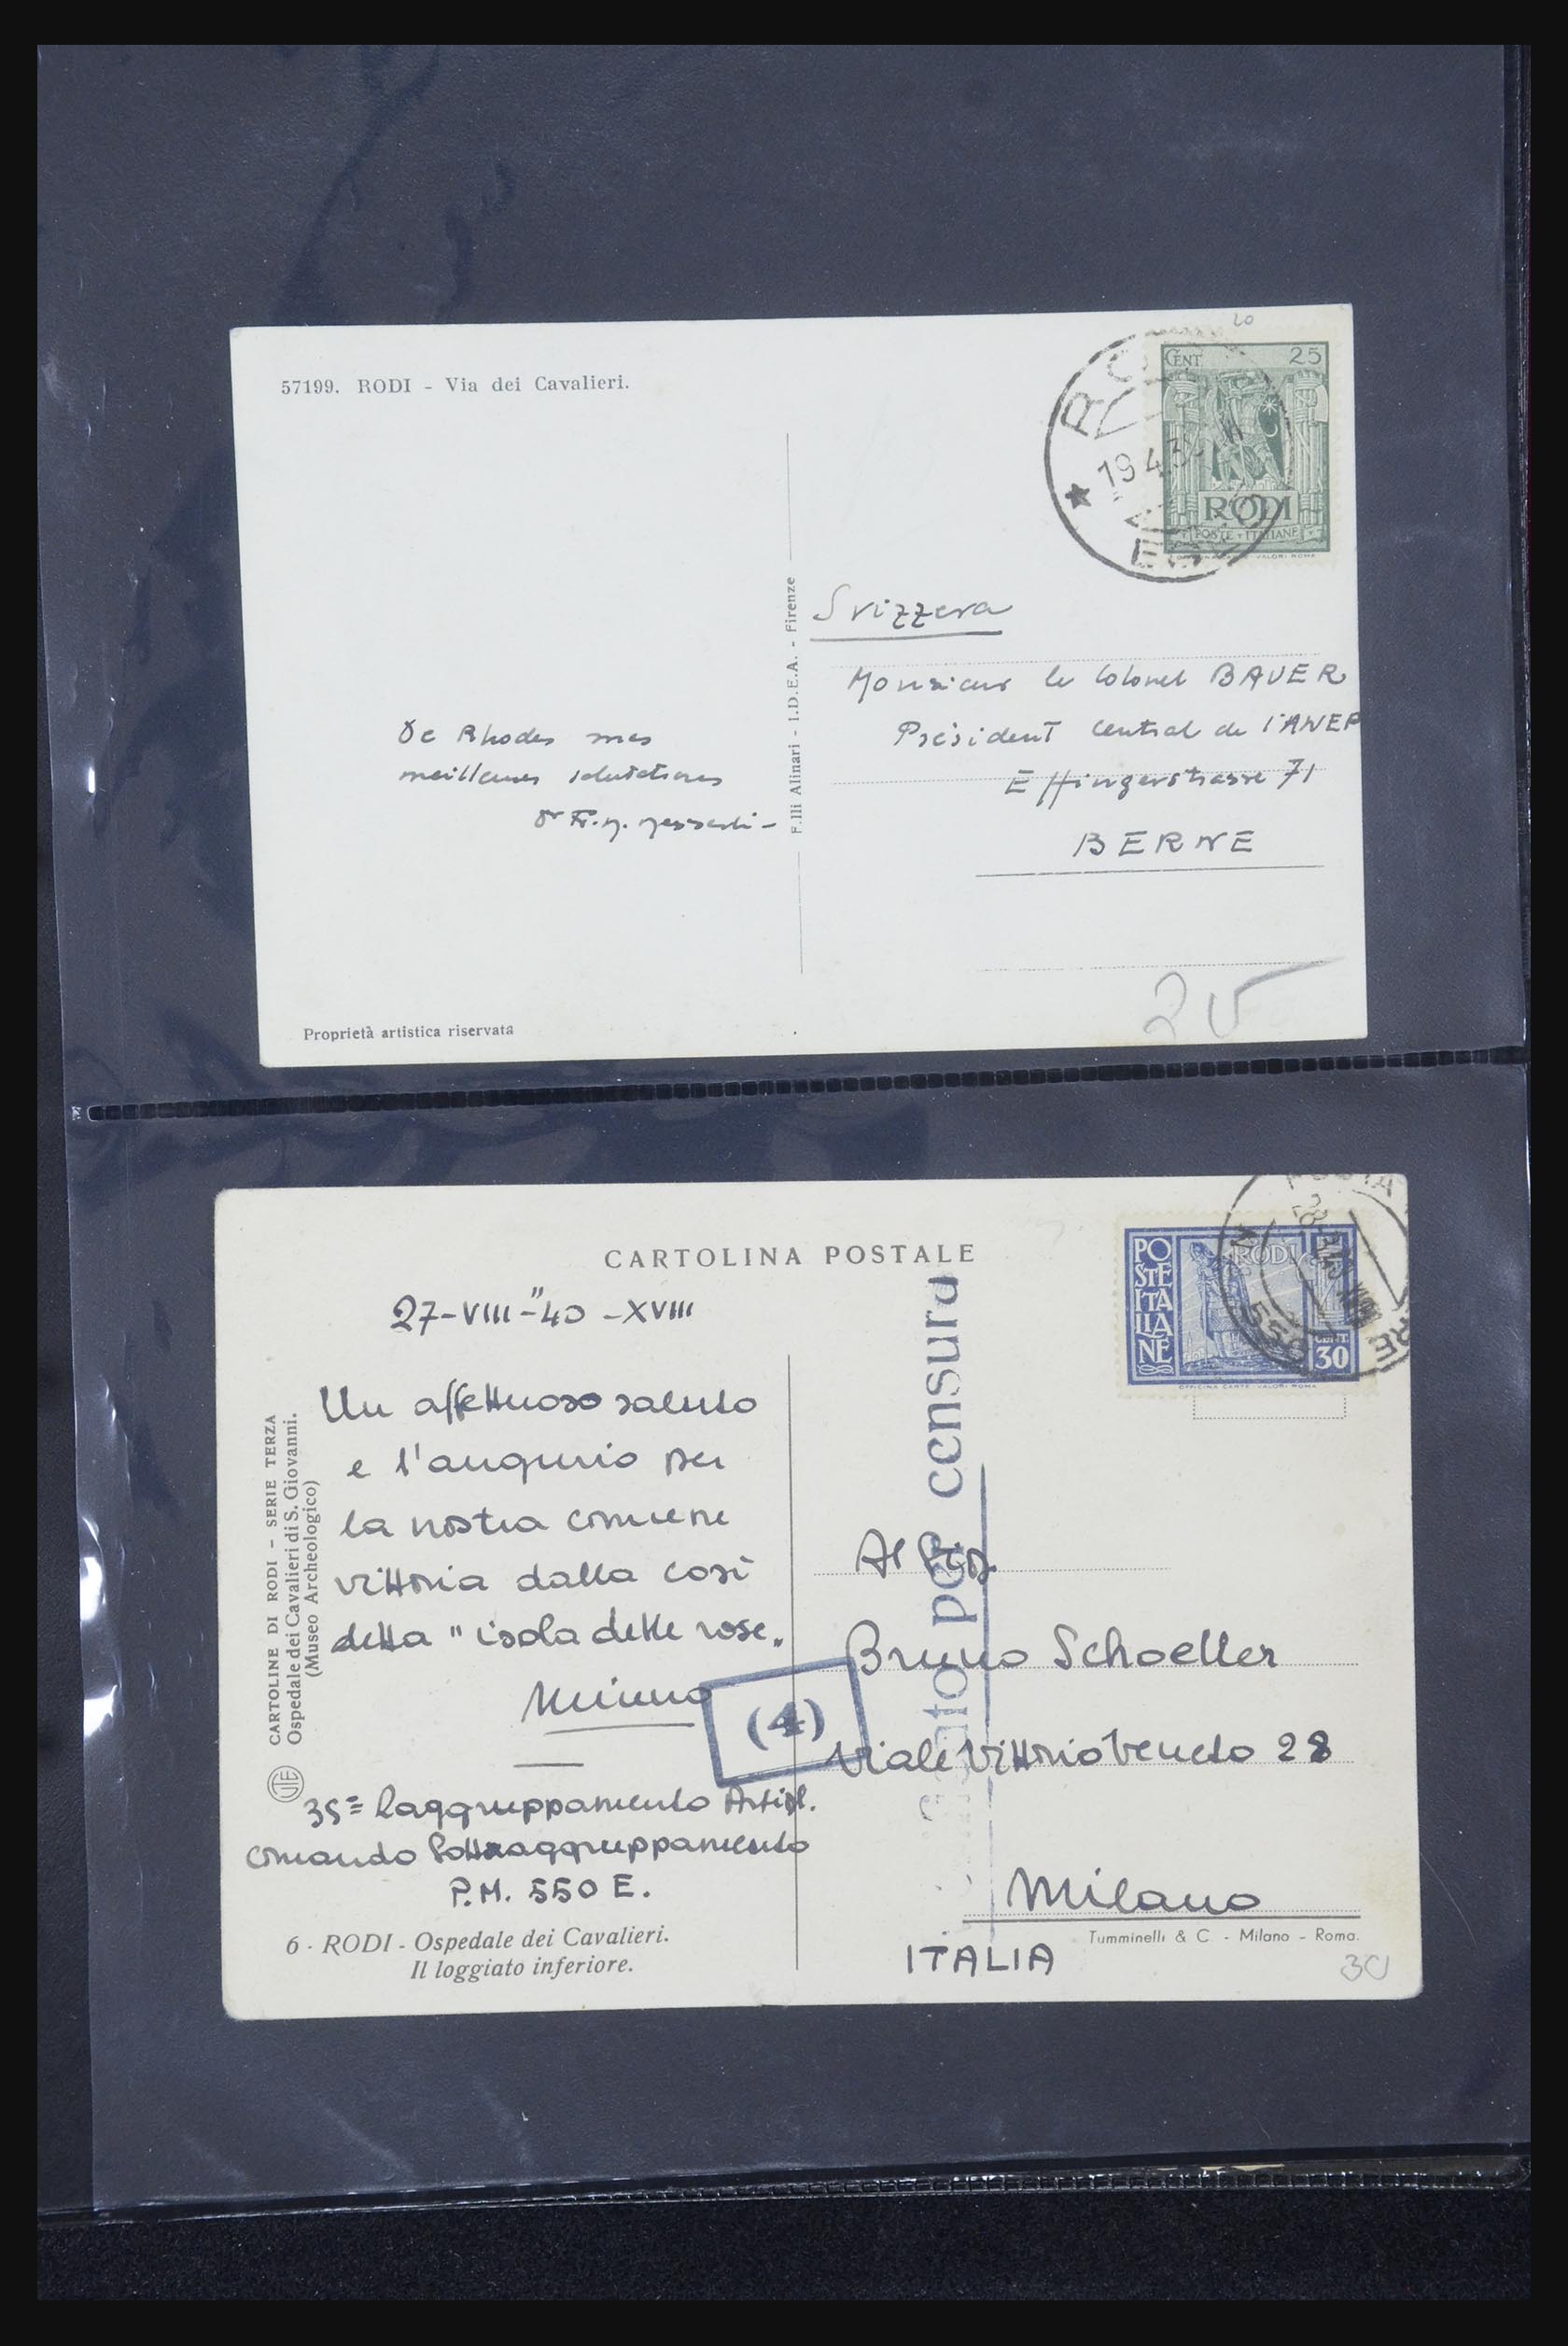 20
57199. RODI - Via dei Cavalieri.
CENT 25
RODI
POSTE ITALIANE
19 4 3
EGEO
Svizzera
Monsieur le Colonel BAUER
Président central de l'ANEP
Effingerstrasse 71
BERNE
De Rhodes mes
meilleures salutations
Dr Fr. M. Messerli -
F.lli Alinari - I.D.E.A. - Firenze
Proprietà artistica riservata
25
CARTOLINA POSTALE
27-VIII-"40 -XVIII
Un affettuoso saluto
e l'augurio per
la nostra comune
vittoria dalla così
detta "isola delle rose"
Mimmo
35° Raggruppamento Artigl.
comando Sottoraggruppamento
P.M. 550 E.
CARTOLINE DI RODI - SERIE TERZA
Ospedale dei Cavalieri di S. Giovanni.
(Museo Archeologico)
UTE
6 - RODI - Ospedale dei Cavalieri.
Il loggiato inferiore.
POSTE ITALIANE
RODI
CENT. 30
OFFICINA CARTE VALORI ROMA
POSTA
N. 550
per censura
(4)
Al Sig.
Bruno Schoeller
Viale Vittorio Veneto 28
Milano
ITALIA
Tumminelli & C - Milano - Roma.
30